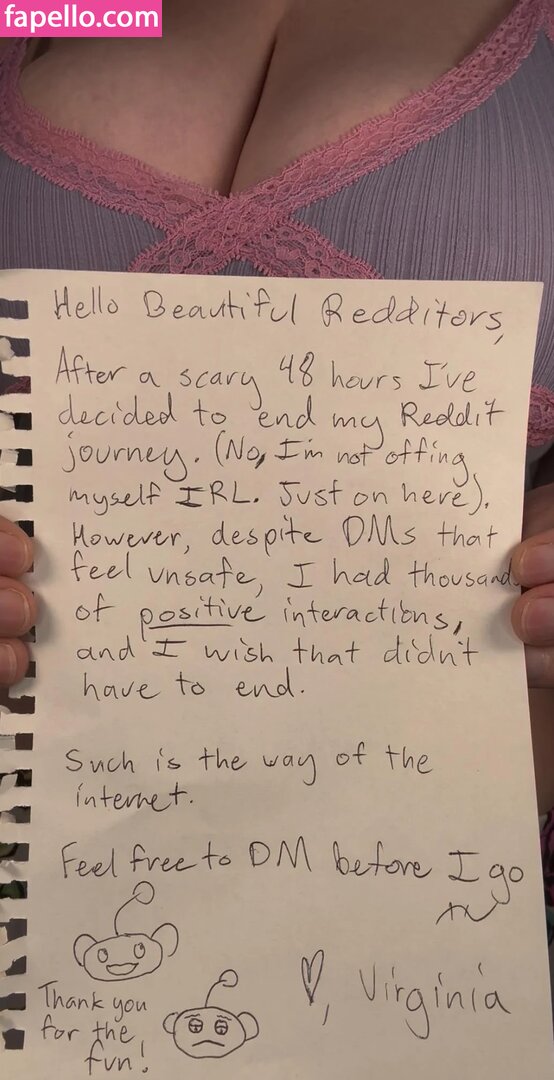 fapello.com
Hello Beautiful Redditors,
After a scary 48 hours I've
decided to end my Reddit
journey. (No, I'm not offing
myself IRL. Just on here).
However, despite DMs that
feel unsafe, I had thousands
of positive interactions,
and I wish that didn't
have to end.
Such is the way of the
internet.
Feel free to DM before I go
Thank you
for the
fun!
♡, Virginia